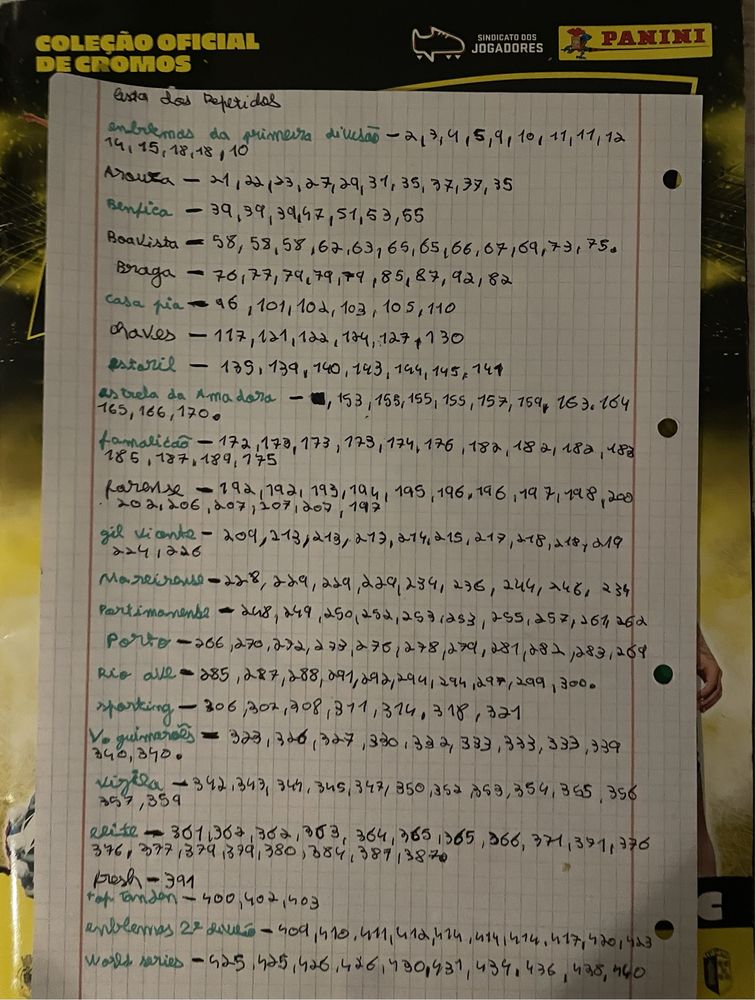 COLEÇÃO OFICIAL
DE CROMOS
SINDICATO DOS
JOGADORES
PANINI
Lista dos Repetidos
emblemas da primeira divisão - 2,3,4,5,9,10,11,11,12
14,15,18,18,10
Arouza - 21,22,23,27,29,31,35,37,37,35
Benfica - 39,39,39,47,51,53,55
Boavista - 58,58,58,62,63,65,65,66,67,69,73,75.
Braga - 76,77,79,79,79,85,87,92,82
casa pia - 96,101,102,103,105,110
chaves - 117,121,122,124,127,130
estoril - 135,139,140,143,144,145,141
estrela da Amadora - ,153,155,155,155,157,159,163.164
165,166,170.
famalicão - 172,173,173,173,174,176,182,182,182,183
185,187,189,175
farense - 192,192,193,194,195,196,196,197,198,200
202,206,207,207,207,197
gil vicente - 209,213,213,213,214,215,217,218,218,219
224,226
Moreirense - 228,229,229,229,234,236,244,246,234
Portimonense - 248,249,250,252,253,253,255,257,261,262
Porto - 266,270,272,273,276,278,279,281,282,283,269
Rio ave - 285,287,288,291,292,294,294,297,299,300.
sporting - 306,307,308,311,314,318,321
V. guimarães - 323,326,327,330,332,333,333,333,339
340,340.
vizela - 342,343,344,345,347,350,352,353,354,355,356
357,359
elite - 361,362,362,363,364,365,365,366,371,371,376
376,377,379,379,380,384,387,387.
fresh - 391
top Tanden - 400,402,403
emblemas 2ª divisão - 409,410,411,412,414,414,414,417,420,423
World series - 425,425,426,426,430,431,434,436,438,440